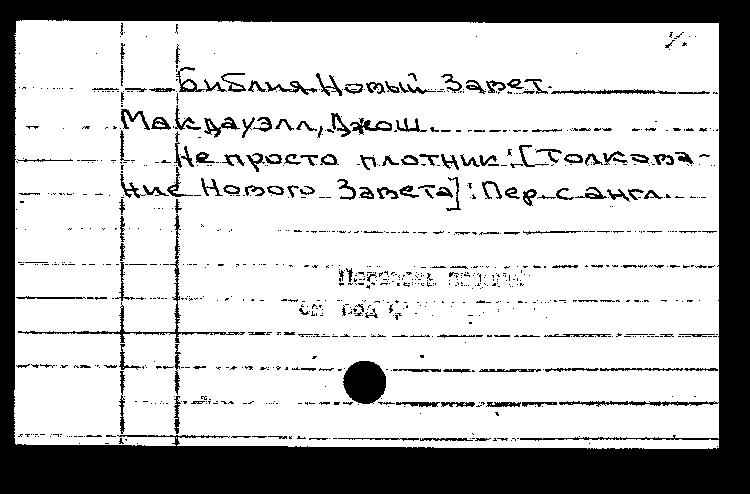 Библия. Новый Завет.
Макдауэлл, Джош.
Не просто плотник: [Толкова-
ние Нового Завета]: Пер. с англ.
см под